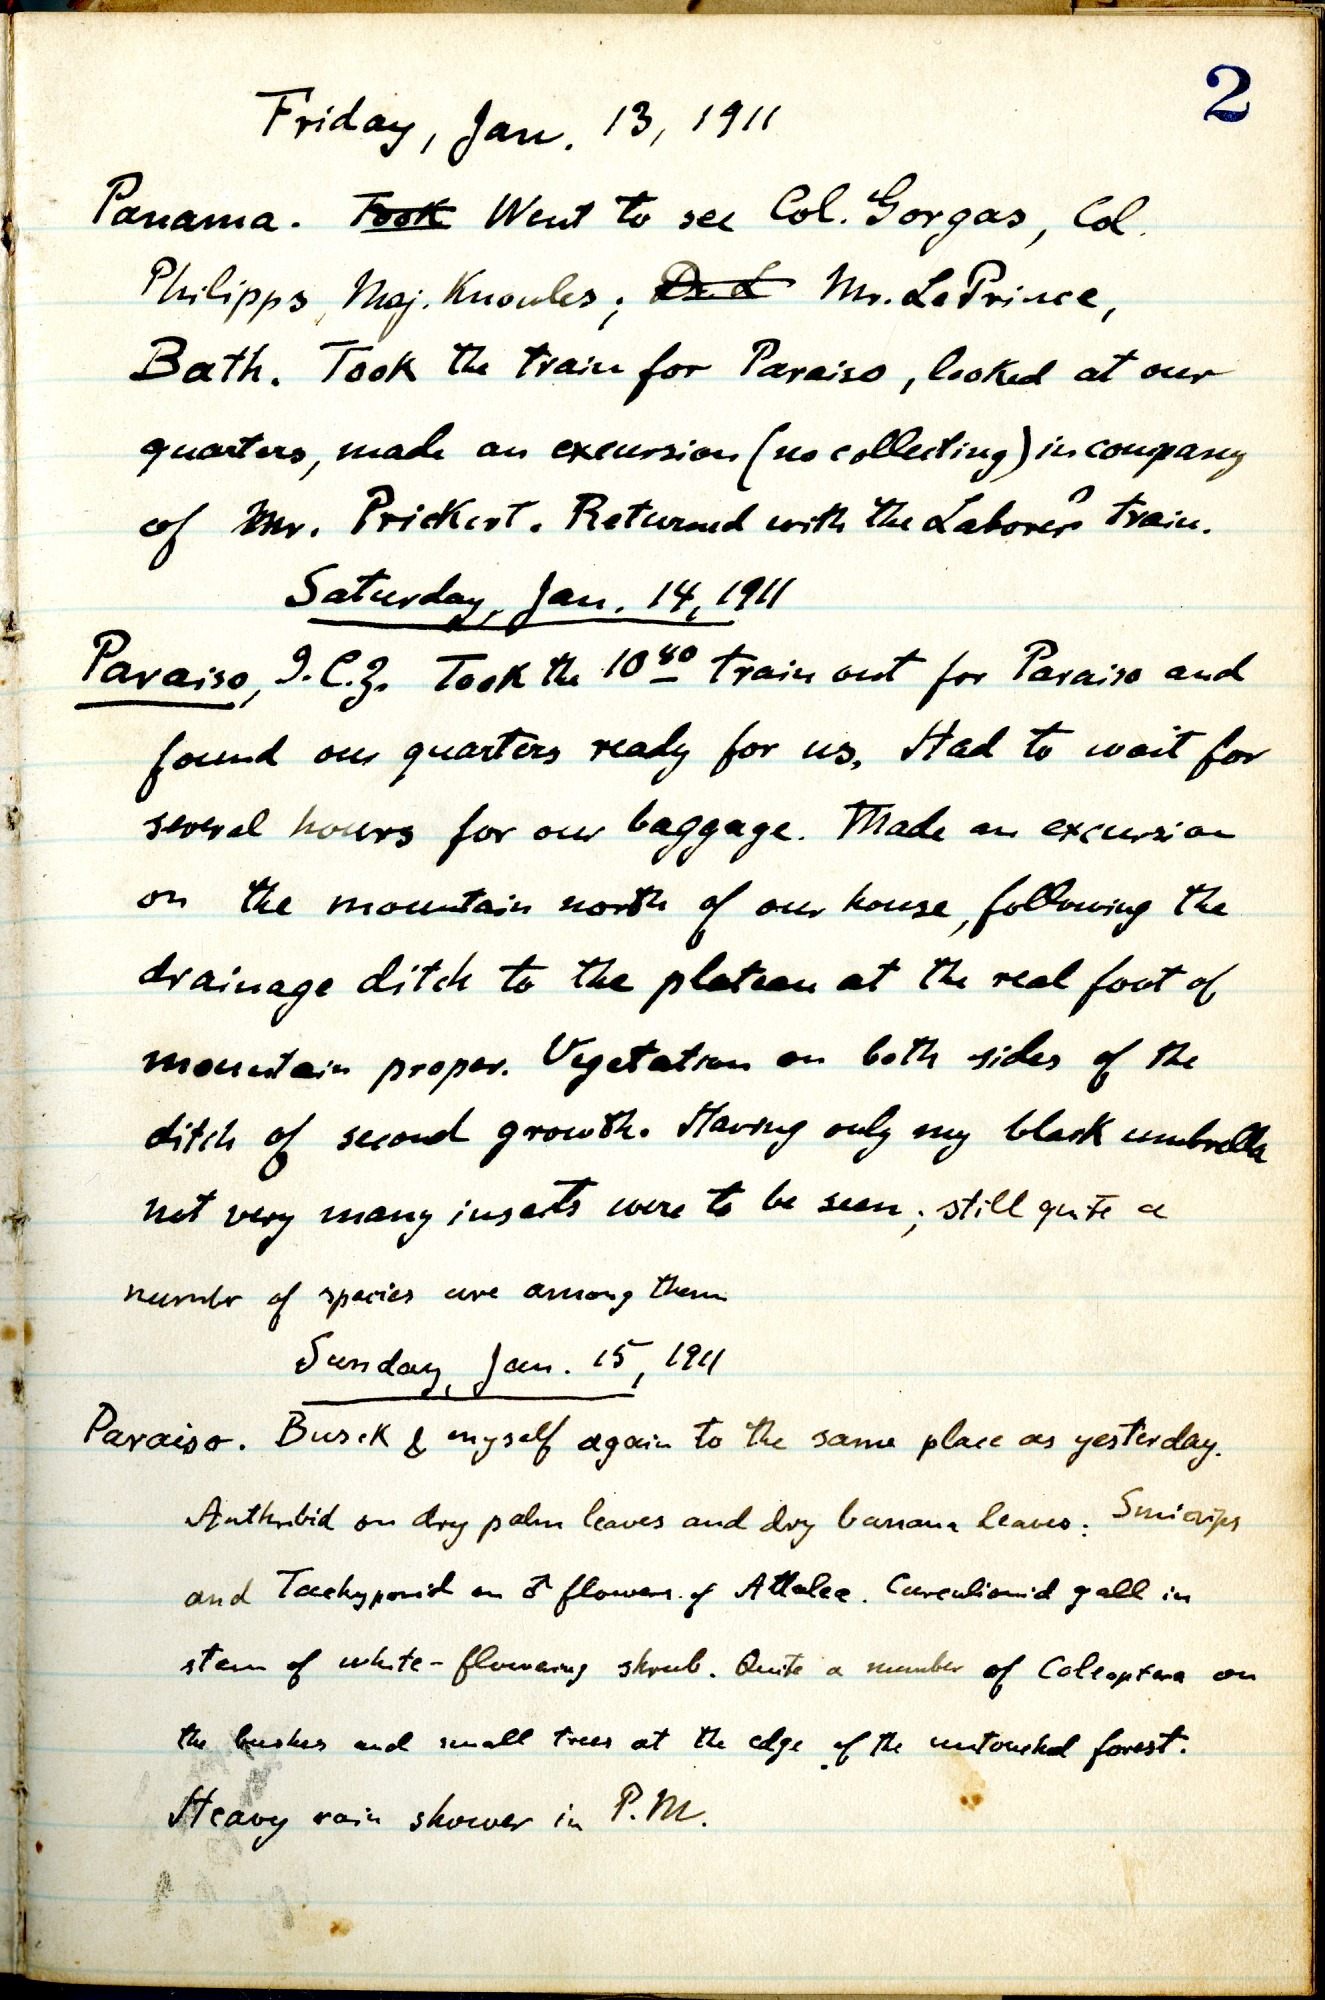 2
Friday, Jan. 13, 1911
Panama. Took Went to see Col. Gorgas, Col.
Philipps, Maj. Knowles; Dr. L Mr. LePrince,
Bath. Took the train for Paraiso, looked at our
quarters, made an excursion (no collecting) in company
of Mr. Prickert. Returned with the Laborers train.
Saturday, Jan. 14, 1911
Paraiso, I.C.Z. Took the 10 40 train out for Paraiso and
found our quarters ready for us. Had to wait for
several hours for our baggage. Made an excursion
on the mountain north of our house, following the
drainage ditch to the plateau at the real foot of
mountain proper. Vegetation on both sides of the
ditch of second growth. Having only my black umbrella
not very many insects were to be seen; still quite a
number of species are among them
Sunday, Jan. 15, 1911
Paraiso. Busck & myself again to the same place as yesterday.
Anthribid on dry palm leaves and dry banana leaves. Smicrips
and Tachyporid on ♂ flowers of Attalea. Curculionid gall in
stem of white-flowering shrub. Quite a number of Coleoptera on
the bushes and small trees at the edge of the untouched forest.
Heavy rain shower in P.M.